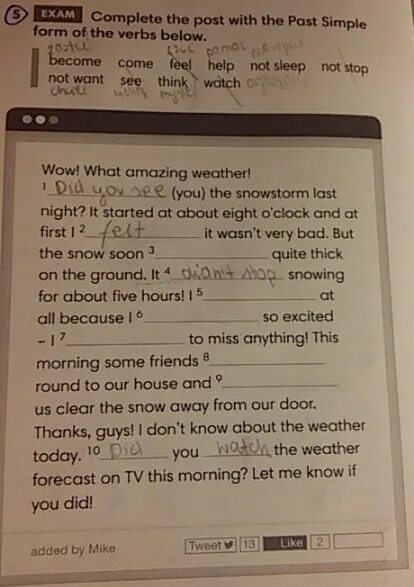 5 EXAM Complete the post with the Past Simple
form of the verbs below.
become come feel help not sleep not stop
not want see think watch
Wow! What amazing weather!
1 Did you see (you) the snowstorm last
night? It started at about eight o'clock and at
first I 2 felt it wasn't very bad. But
the snow soon 3 quite thick
on the ground. It 4 didn't stop snowing
for about five hours! I 5 at
all because I 6 so excited
– I 7 to miss anything! This
morning some friends 8
round to our house and 9
us clear the snow away from our door.
Thanks, guys! I don't know about the weather
today. 10 Did you watch the weather
forecast on TV this morning? Let me know if
you did!
added by Mike Tweet 13 Like 2